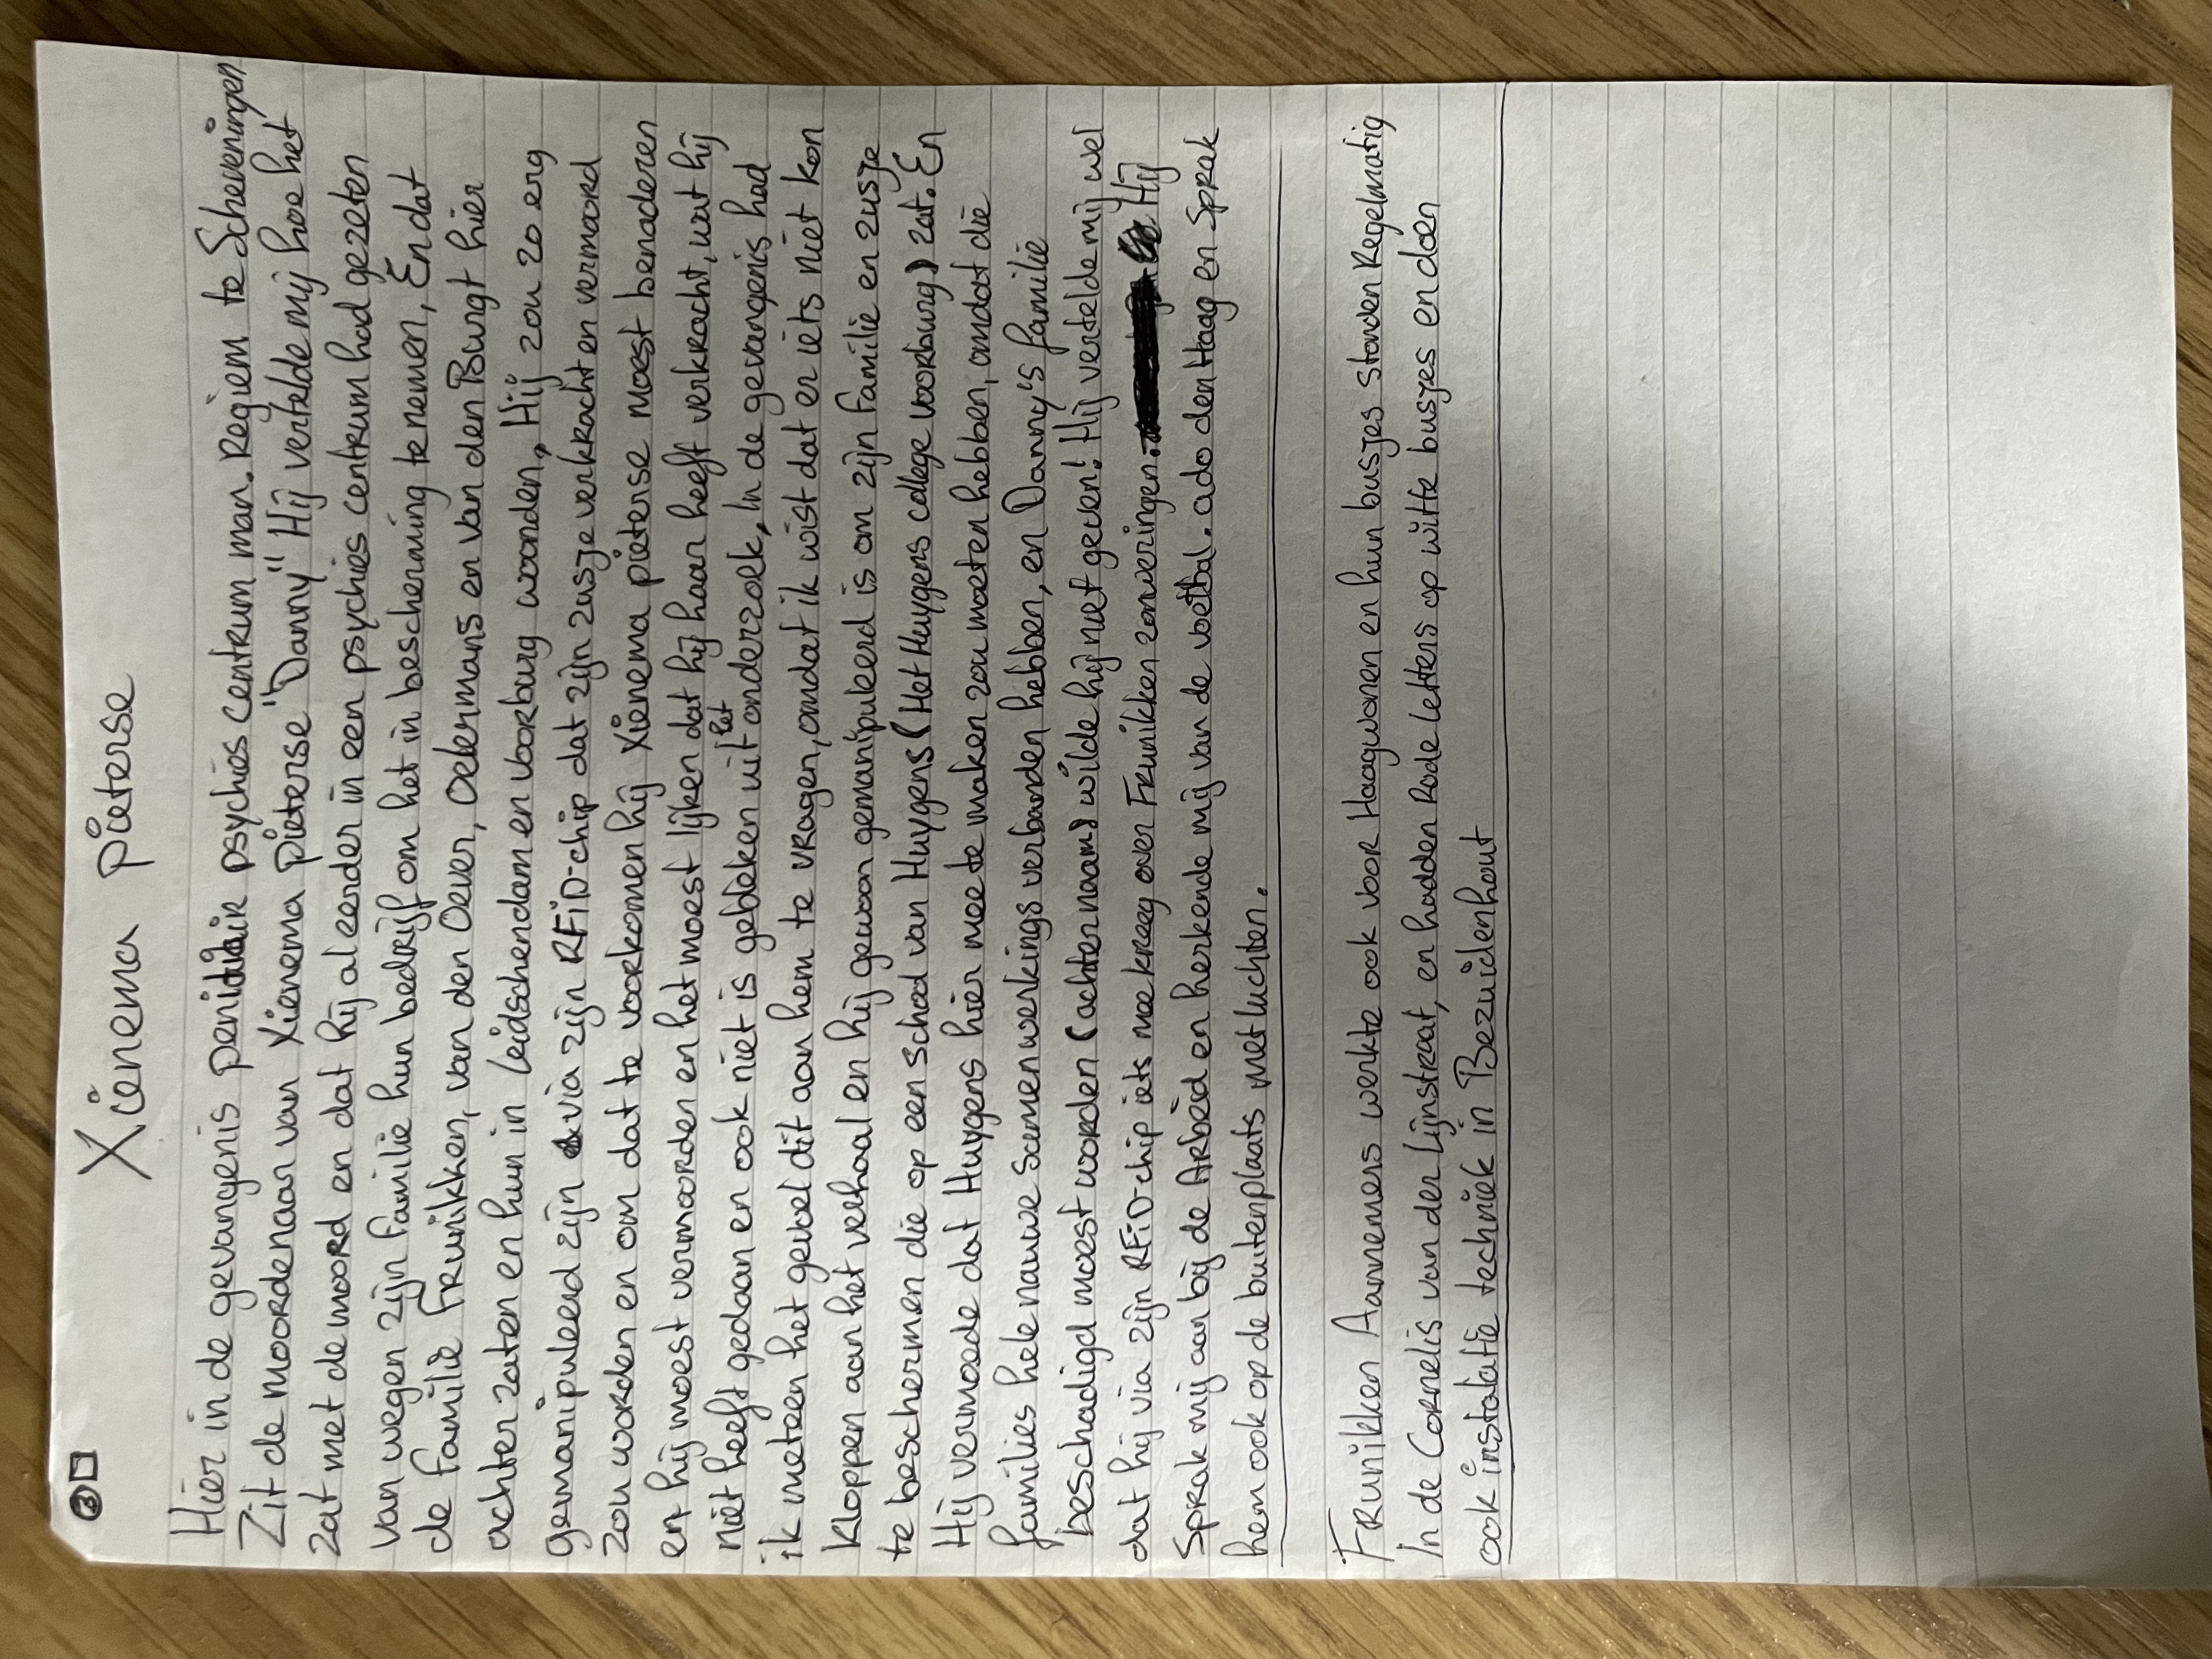 ③
Xienema Pieterse
Hier in de gevangenis penitiair psychies centrum man. Regiem te Scheveningen
Zit de moordenaar van Xienema Pieterse "Danny" Hij vertelde mij hoe het
zat met de moord en dat hij al eerder in een psychies centrum had gezeten
van wegen zijn familie hun bedrijf om het in bescherming te nemen, En dat
de familie Frunikken, van den Oever, Oelermans en van den Burgt hier
achter zaten en hun in Leidschendam en Voorburg woonden, Hij zou zo erg
gemanipuleerd zijn via zijn RFiD-chip dat zijn zusje verkracht en vermoord
zou worden en om dat te voorkomen hij Xienema pieterse moest benaderen
en hij moest vermoorden en het moest lijken dat hij haar heeft verkracht, wat hij
niet heeft gedaan en ook niet is gebleken uit het onderzoek, In de gevangenis had
ik meteen het gevoel dit aan hem te vragen, omdat ik wist dat er iets niet kon
kloppen aan het verhaal en hij gewoon gemanipuleerd is om zijn familie en zusje
te beschermen die op een school van Huygens (Het Huygens college voorburg) zat. En
Hij vermoede dat Huygens hier mee te maken zou moeten hebben, omdat die
families hele nauwe samenwerkings verbanden hebben, en Danny's familie
beschadigd moest worden (achternaam) wilde hij niet geven! Hij vertelde mij wel
dat hij via zijn RFiD-chip iets mee kreeg over Frunikken zonweringen. Hij
Sprak mij aan bij de Arbeid en herkende mij van de voetbal. ado den Haag en Sprak
hem ook op de buitenplaats met luchten.
Frunikken Aannemers werkte ook voor Haagwonen en hun busjes stonden Regelmatig
In de Cornelis van der Lijnstraat, en hadden Rode letters op witte busjes en doen
ook instalatie techniek in Bezuidenhout